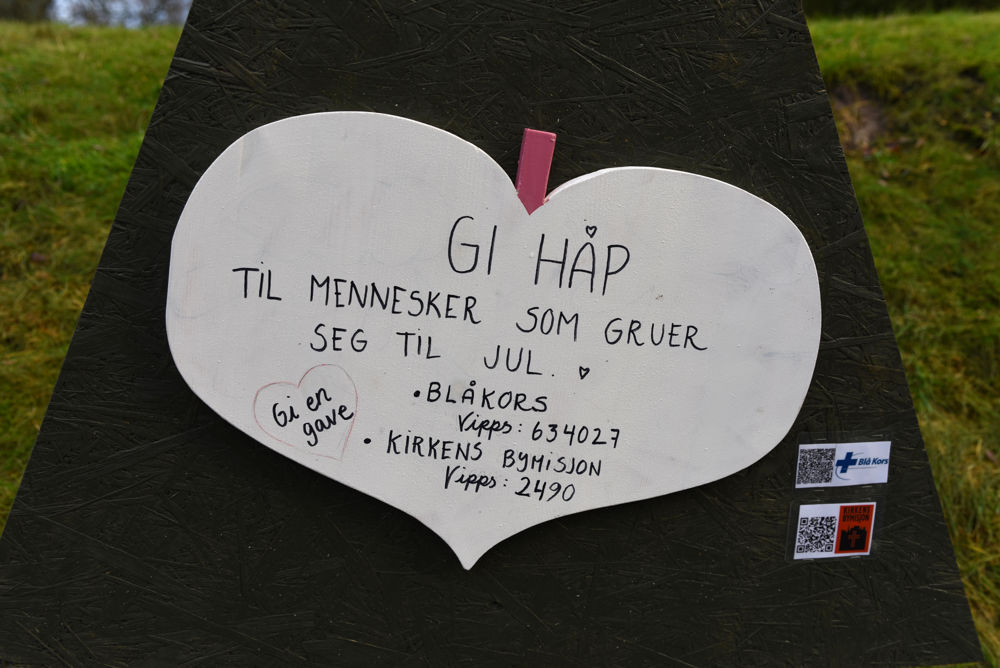 GI HÅP
TIL MENNESKER SOM GRUER
SEG TIL JUL.
• BLÅKORS
Vipps: 634027
• KIRKENS BYMISJON
Vipps: 2490
Gi en
gave
Blå Kors
KIRKENS
BYMISJON